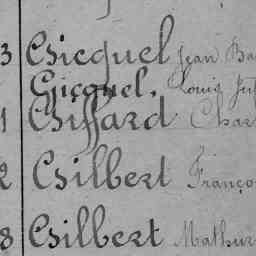 3 Gicquel Jean Ba
Gicquel, Louis
1 Giffard Char
2 Gilbert Franço
8 Gilbert Mathur